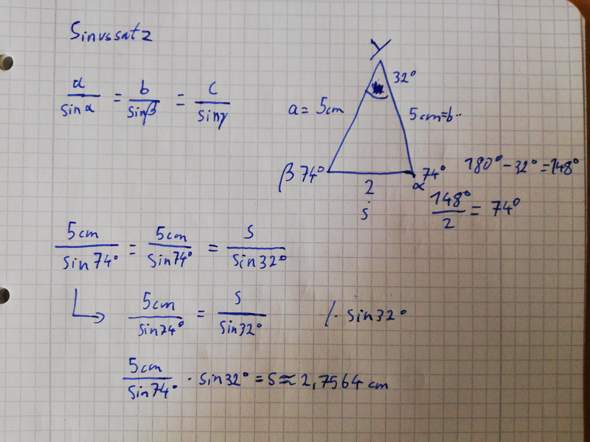 Sinussatz
α/sinα = b/sinβ = c/sinγ
γ
32°
a = 5cm
5cm=b
β 74°
74°
α
2
s
180° - 32° = 148°
148°/2 = 74°
5cm/sin74° = 5cm/sin74° = s/sin32°
5cm/sin74° = s/sin32° /· sin32°
5cm/sin74° · sin32° = s ≈ 2,7564 cm